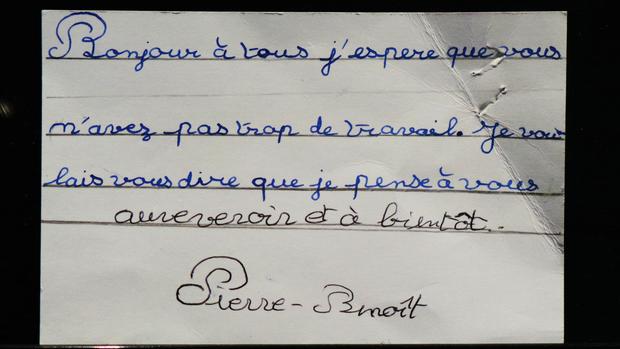 Bonjour à tous j'espere que vous
n'avez pas trop de travail. Je vou
lais vous dire que je pense à vous
aurevenoir et à bientôt..
Pierre-Benoît